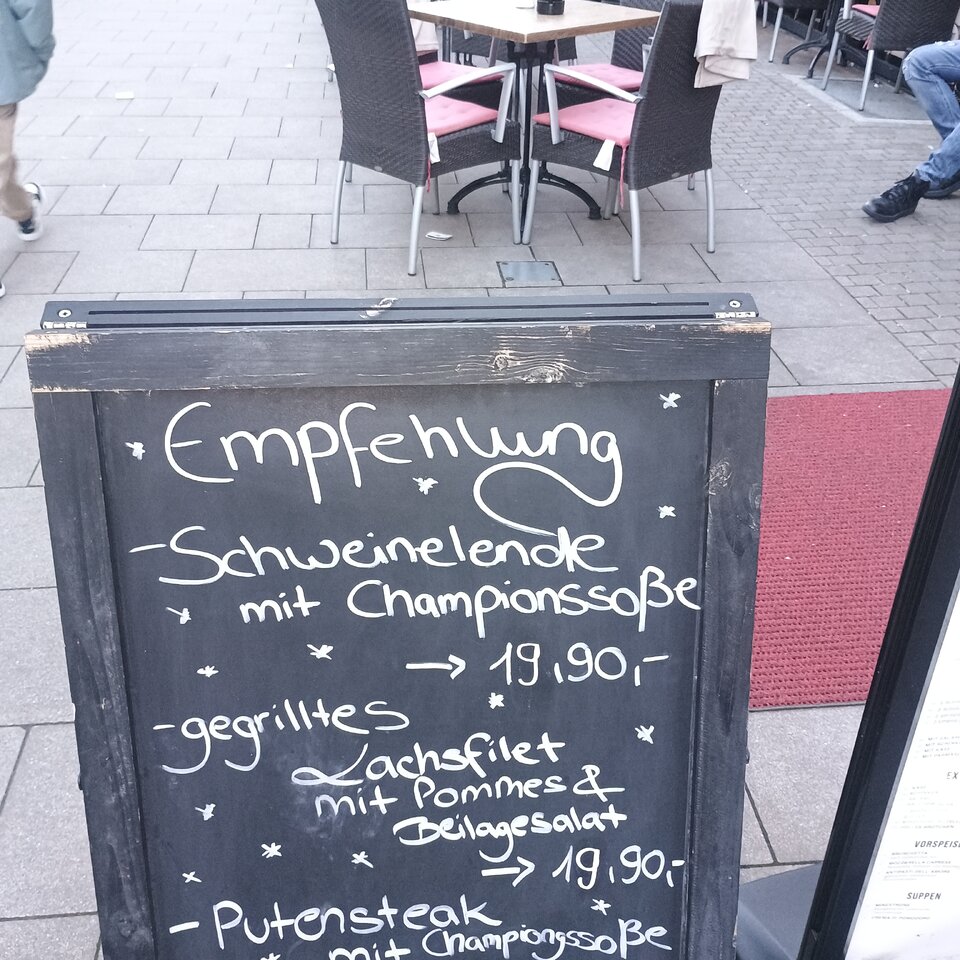 Empfehlung
-Schweinelende
mit Championssoße
→ 19,90,-
-gegrilltes
Lachsfilet
mit Pommes &
Beilagesalat
→ 19,90,-
-Putensteak
mit Championgssoße
VORSPEIS
SUPPEN